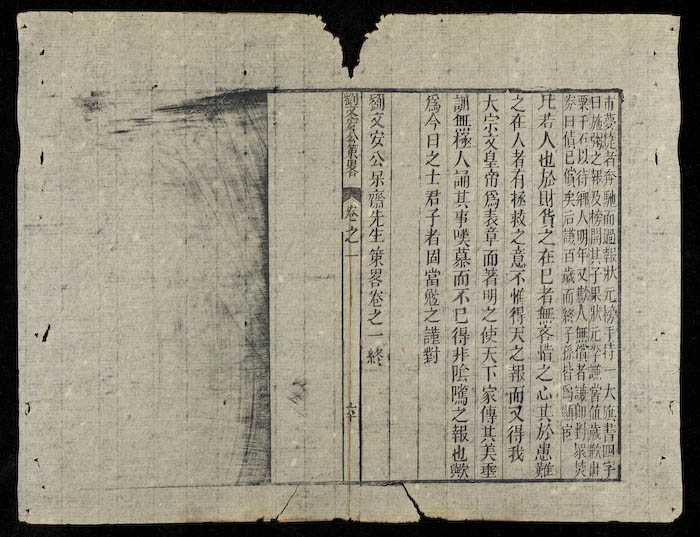 夢者奔馳而過報狀元榜手持一大旗書四字
曰施粥之報及榜開其子果狀元李謙嘗值歲歉出
粟千石以待鄉人明年又歉人無償者謙即對眾焚
券曰債已償矣后謙百歲而終子孫皆為顯官
凡若人也於財貨之在己者無吝惜之心其於患難
之在人者有拯救之意不惟得天之報而又得我
大宗文皇帝爲表章而著明之使天下家傳其美垂
訓無極人誦其事嘆慕而不已得非陰騭之報也歟
爲今日之士君子者固當勉之謹對
劉文安公呆齋先生策畧卷之一終
劉文安公策畧 卷之一 六十